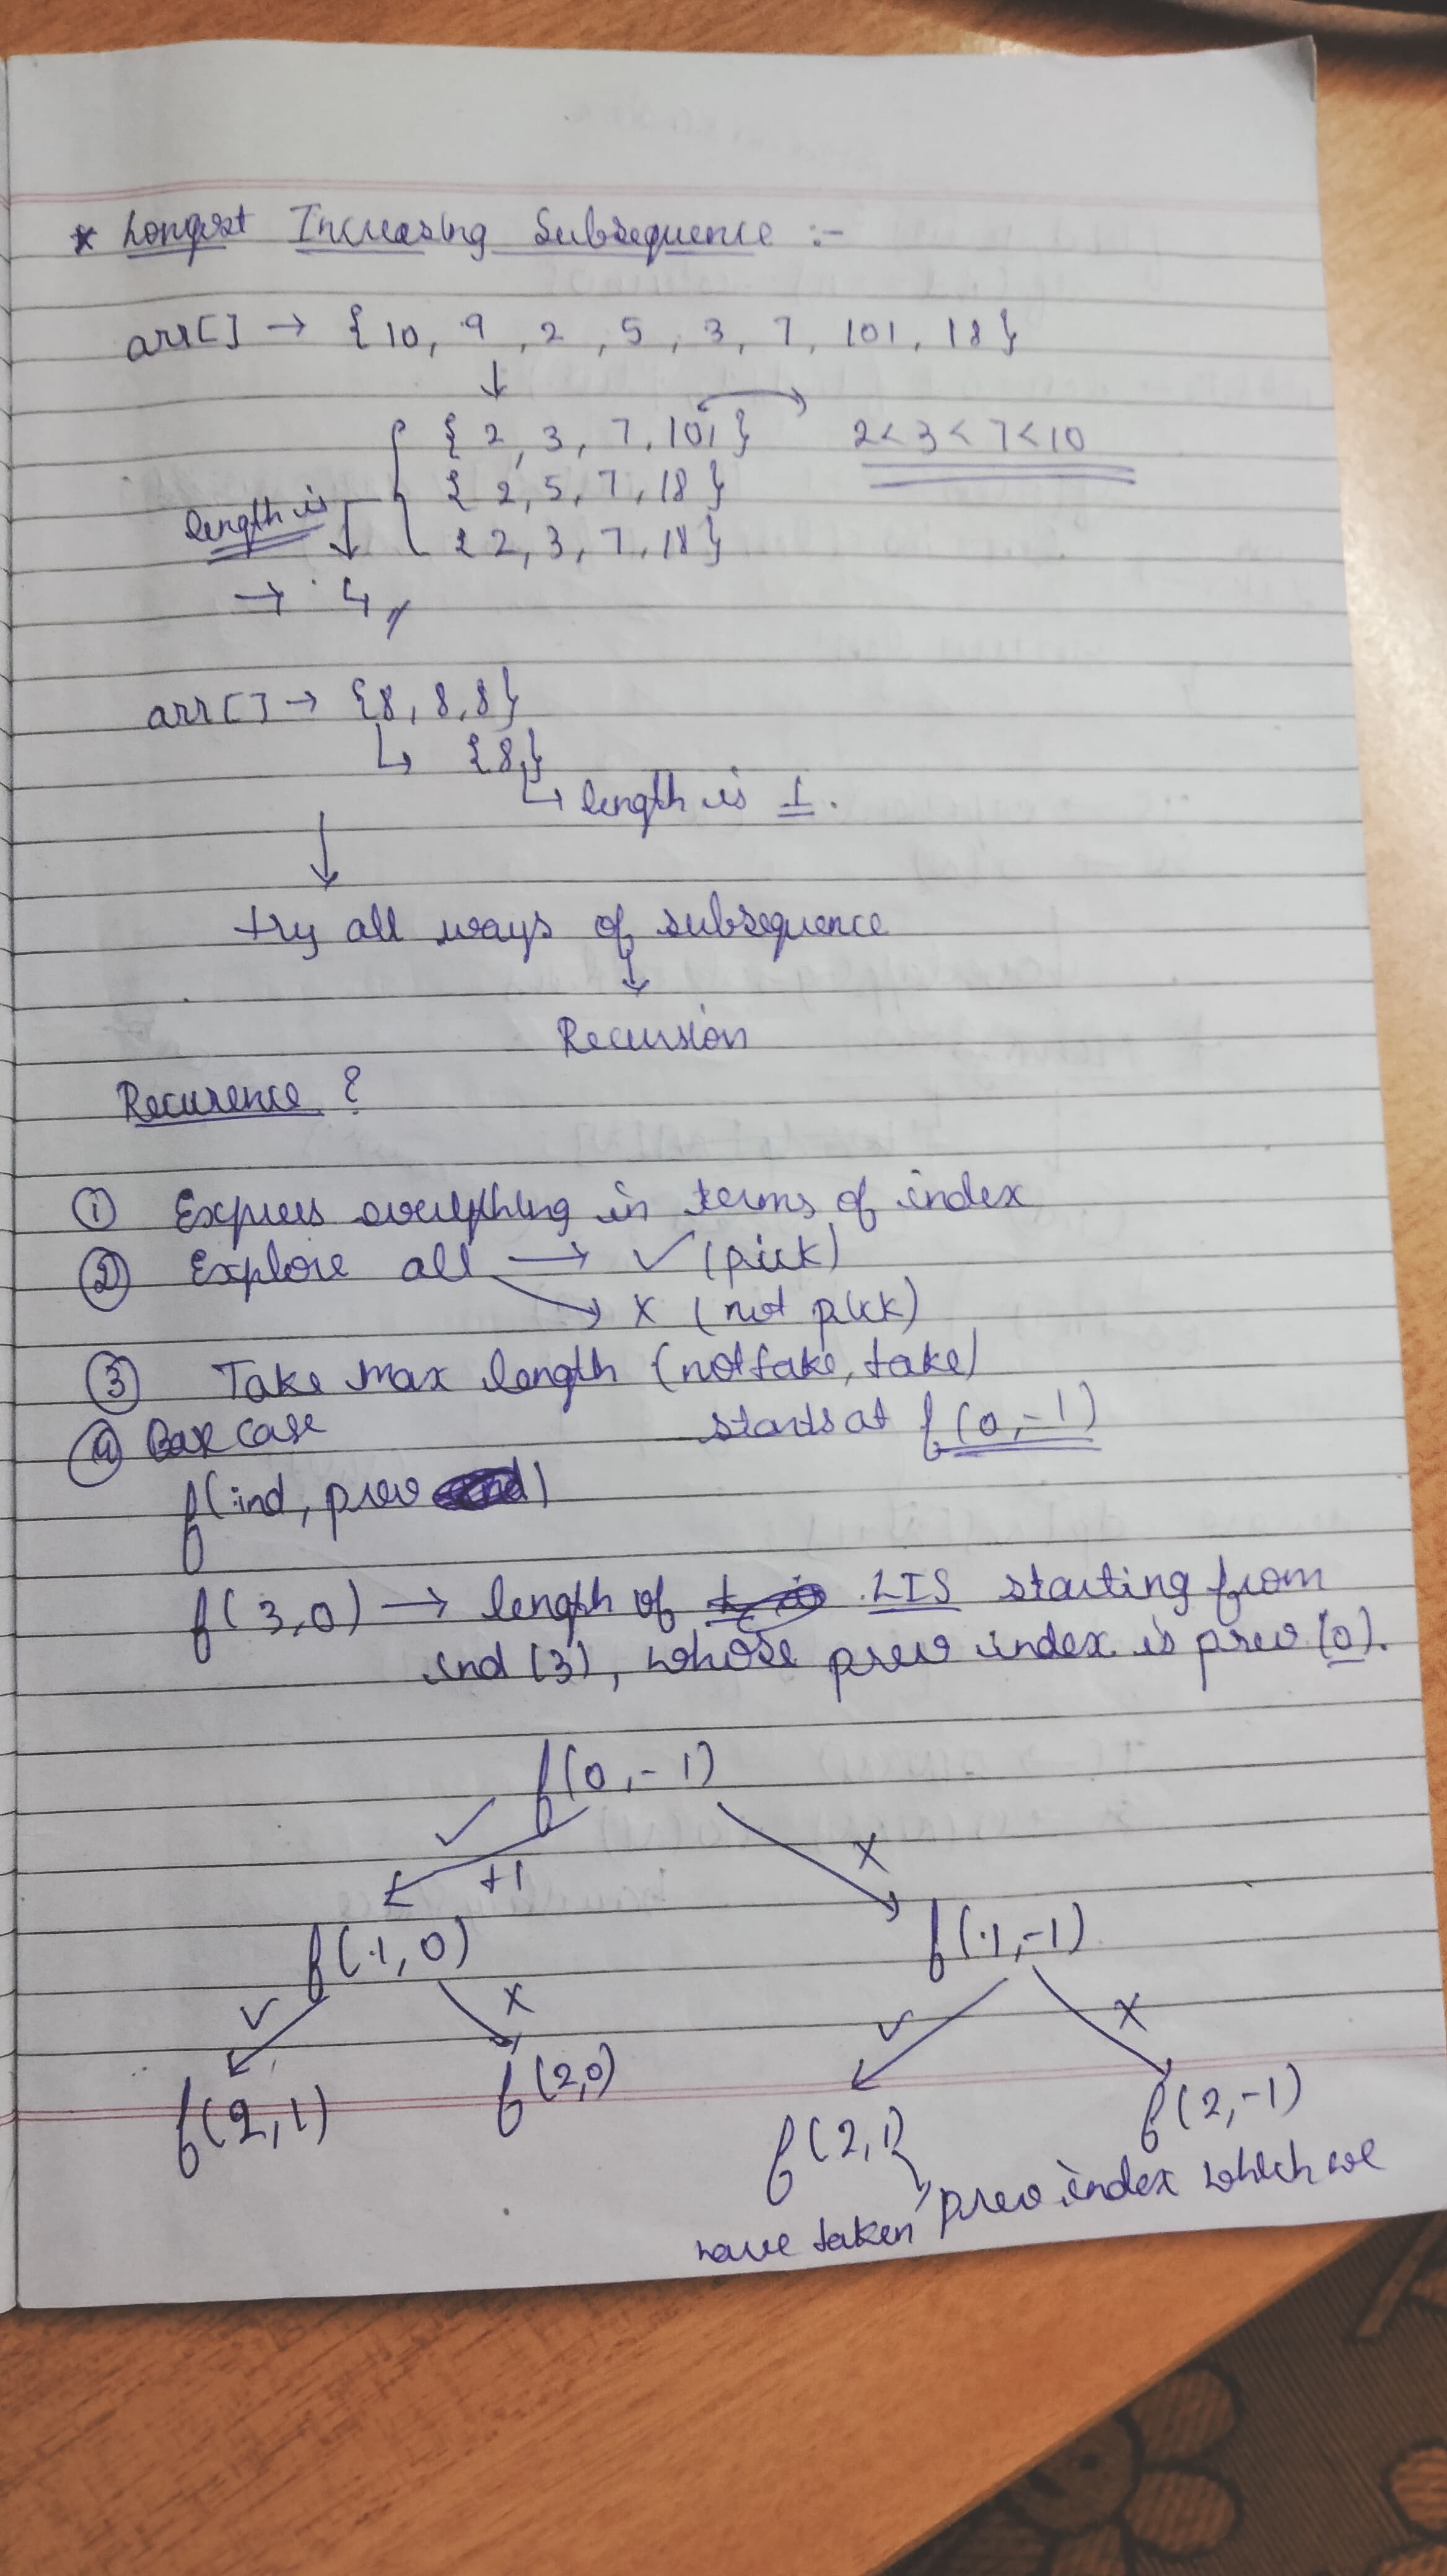 * Longest Increasing Subsequence :-
arr[] → {10, 9, 2, 5, 3, 7, 101, 18}
↓
{2, 3, 7, 101} → 2<3<7<10
{2, 5, 7, 18}
length is
{2, 3, 7, 18}
→ 4
arr[] → {8, 8, 8}
↳ {8}
↳ length is 1.
↓
try all ways of subsequence
↓
Recursion
Recurence ?
① Express everything in terms of index
② Explore all → ✓ (pick)
→ x (not pick)
③ Take max length (not take, take)
④ Base case starts at f(0,-1)
f(ind, prev)
f(3,0) → length of LIS starting from
ind (3), whose prev index is prev (0).
f(0,-1)
✓ +1 x
f(1,0) f(1,-1)
✓ x ✓ x
f(2,1) f(2,0) f(2,1) f(2,-1)
prev index which we
have taken